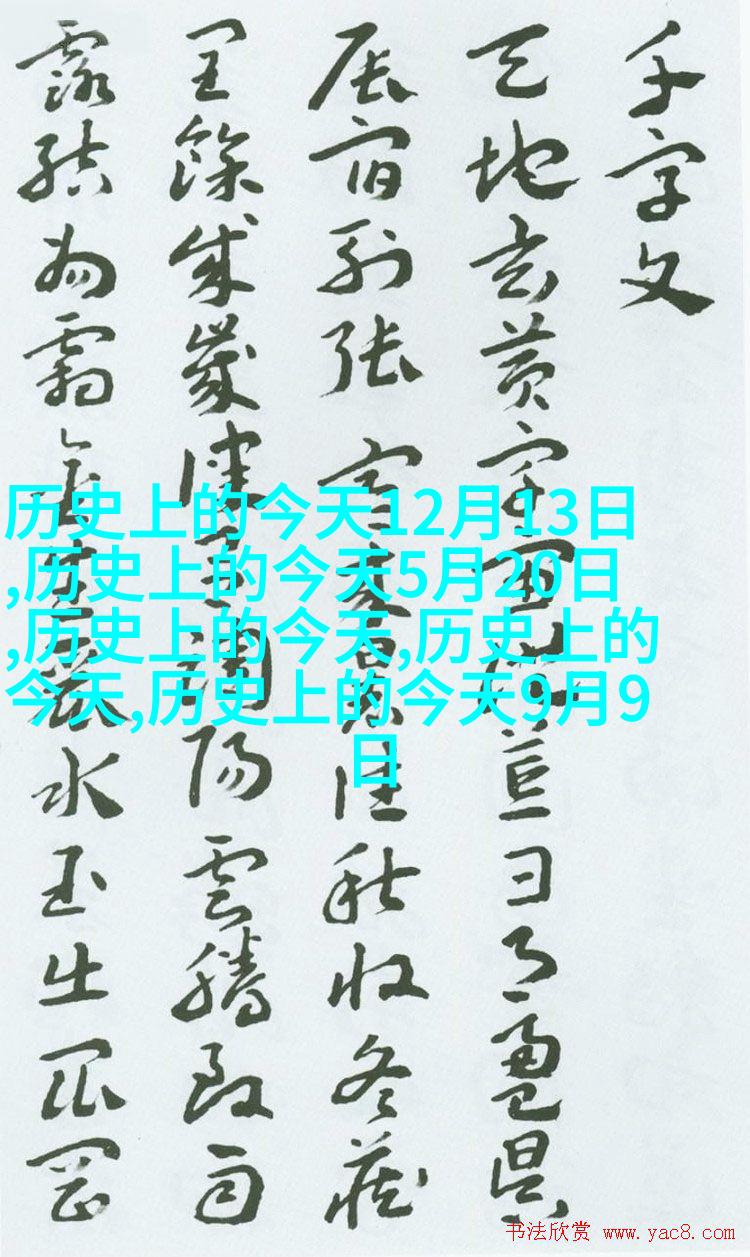 千字文
天地玄黄宇宙洪荒日月盈昃
辰宿列張寒来暑往秋收冬藏
閏餘成歲律吕調陽雲騰致雨
露結為霜金生麗水玉出崑岡
历史上的今天12月13日
,历史上的今天5月20日
,历史上的今天,历史上的
今天,历史上的今天9月9
日
书法欣赏 www.yac8.com